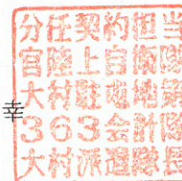 分任契約担当
官陸上自衛隊
大村駐屯地第
363会計隊
大村派遣隊長
幸